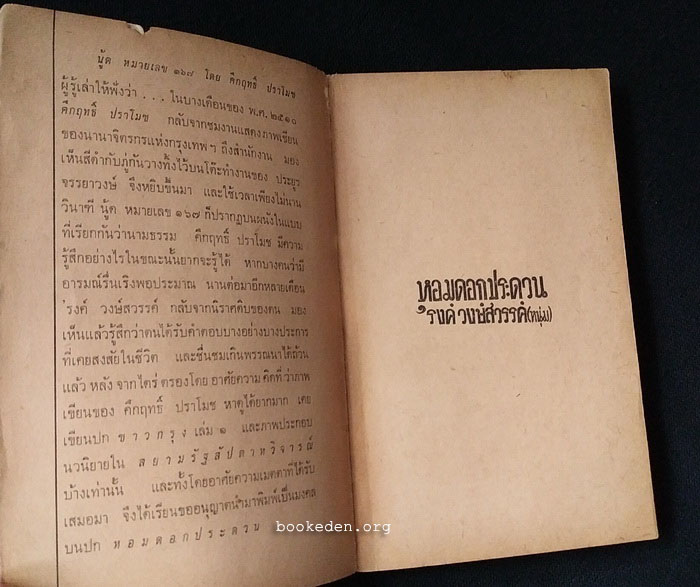 นู้ด หมายเลข ๑๖๗ โดย คึกฤทธิ์ ปราโมช
ผู้รู้เล่าให้ฟังว่า . . . ในบางเดือนของ พ.ศ. ๒๕๑๐
คึกฤทธิ์ ปราโมช กลับจากชมงานแสดงภาพเขียน
ของนานาจิตรกรแห่งกรุงเทพฯ ถึงสำนักงาน มอง
เห็นสีดำกับภู่กันวางทิ้งไว้บนโต๊ะทำงานของ ประยูร
จรรยาวงษ์ จึงหยิบขึ้นมา และใช้เวลาเพียงไม่นาน
วินาที นู้ด หมายเลข ๑๖๗ ก็ปรากฏบนผนังในแบบ
ที่เรียกกันว่านามธรรม คึกฤทธิ์ ปราโมช มีความ
รู้สึกอย่างไรในขณะนั้นยากจะรู้ได้ หากบางคนว่ามี
อารมณ์รื่นเริงพอประมาณ นานต่อมาอีกหลายเดือน
'รงค์ วงษ์สวรรค์ กลับจากนิราศดิบของตน มอง
เห็นแล้วรู้สึกว่าตนได้รับคำตอบบางอย่างบางประการ
ที่เคยสงสัยในชีวิต และชื่นชมเกินพรรณนาได้ถ้วน
แล้ว หลัง จาก ไตร่ ตรองโดย อาศัยความ คิดที่ว่าภาพ
เขียนของ คึกฤทธิ์ ปราโมช หาดูได้ยากมาก เคย
เขียนปก ชาวกรุง เล่ม ๑ และภาพประกอบ
นวนิยายใน สยามรัฐสัปดาหวิจารณ์
บ้างเท่านั้น และทั้งโดยอาศัยความเมตตาที่ได้รับ
เสมอมา จึงได้เรียนขออนุญาตนำมาพิมพ์เป็นมงคล
บนปก หอมดอกประดวน
หอมดอกประดวน
'รงค์ วงษ์สวรรค์ (หนุ่ม)
bookeden.org